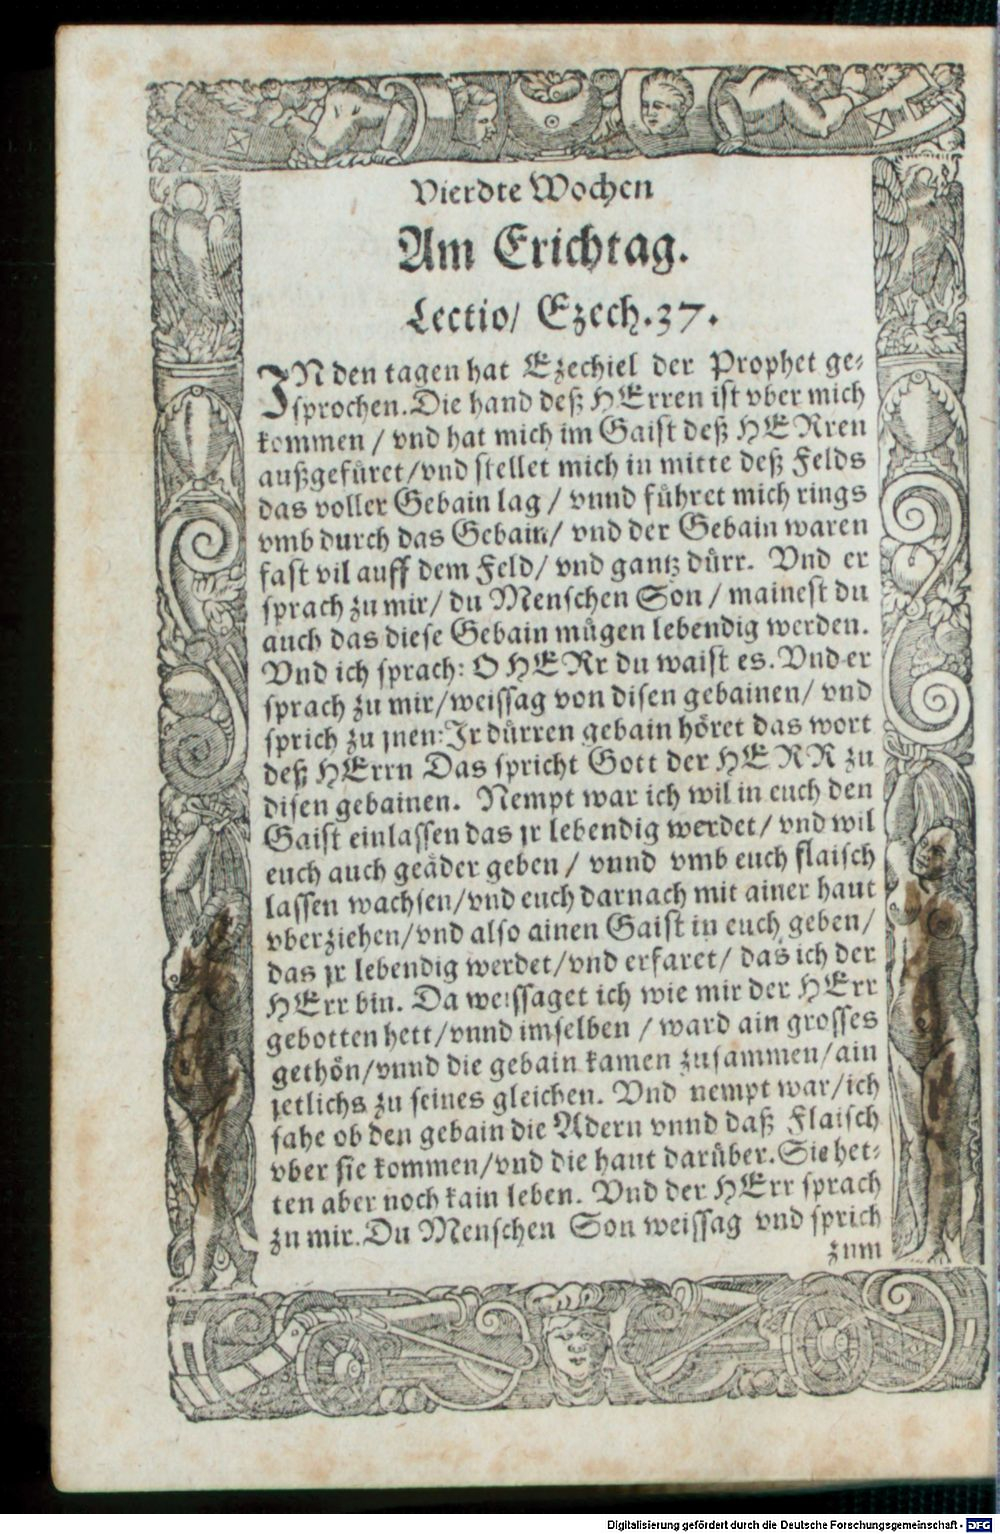 Vierdte Wochen
Am Erichtag.
Lectio/ Ezech.37.
IN den tagen hat Ezechiel der Prophet ge-
sprochen. Die hand deß HErren ist vber mich
kommen / vnd hat mich im Gaist deß HERren
außgefüret/vnd stellet mich in mitte deß Felds
das voller Gebain lag / vnnd führet mich rings
vmb durch das Gebain/ vnd der Gebain waren
fast vil auff dem Feld/ vnd gantz dürr. Vnd er
sprach zu mir/ du Menschen Son / mainest du
auch das diese Gebain mügen lebendig werden.
Vnd ich sprach: O HERr du waist es. Vnd er
sprach zu mir/weissag von disen gebainen/ vnd
sprich zu jnen: Ir dürren gebain höret das wort
deß HErrn Das spricht Gott der HERR zu
disen gebainen. Nempt war ich wil in euch den
Gaist einlassen das jr lebendig werdet/ vnd wil
euch auch geäder geben / vnnd vmb euch flaisch
lassen wachsen/vnd euch darnach mit ainer haut
vberziehen/vnd also ainen Gaist in euch geben/
das jr lebendig werdet/vnd erfaret/ das ich der
HErr bin. Da weissaget ich wie mir der HErr
gebotten hett/vnnd imselben / ward ain grosses
gethön/vnnd die gebain kamen zusammen/ain
jetlichs zu seines gleichen. Vnd nempt war/ich
sahe ob den gebain die Adern vnnd daß Flaisch
vber sie kommen/vnd die haut darüber. Sie het-
ten aber noch kain leben. Vnd der HErr sprach
zu mir. Du Menschen Son weissag vnd sprich
zum
Digitalisierung gefördert durch die Deutsche Forschungsgemeinschaft - DFG